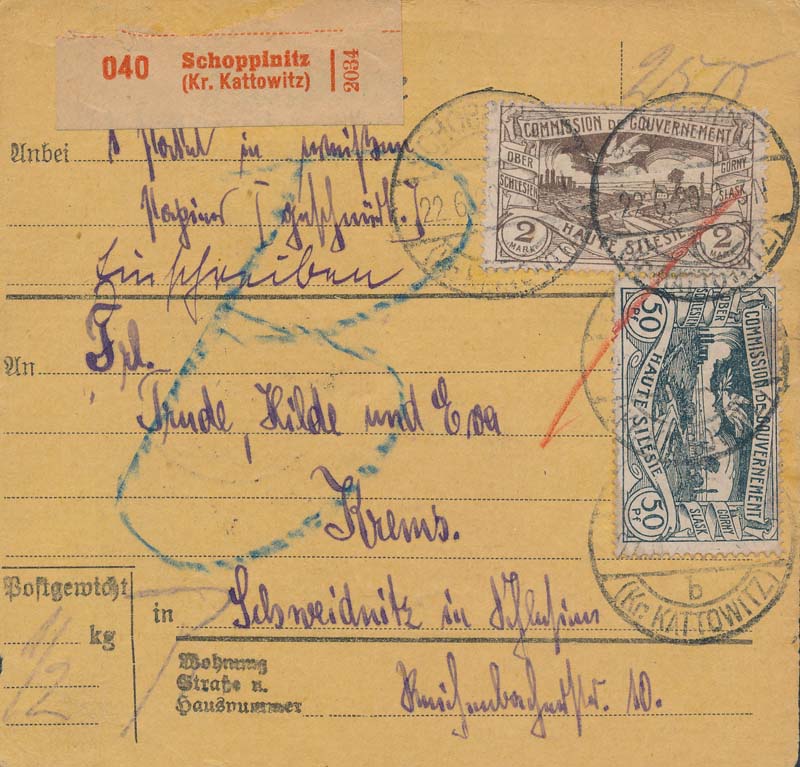 040 Schoppinitz
(Kr. Kattowitz)
2034
Anbei 1 Paket in weißem
Papier [geschnürt.]
Einschreiben
An Frl.
Trude, Hilde und Eva
Krems.
in Schweidnitz in Schlesien
Wohnung
Straße u.
Hausnummer
Reichenbacherstr. 10.
Postgewicht
kg
COMMISSION DE GOUVERNEMENT
OBER
SCHLESIEN
GÓRNY
ŚLĄSK
HAUTE SILESIE
2
MARK
2
MARK
22.6
22.6.20
COMMISSION DE GOUVERNEMENT
OBER
SCHLESIEN
GÓRNY
ŚLĄSK
HAUTE SILESIE
50
Pf
50
Pf
b
(Kr. KATTOWITZ)